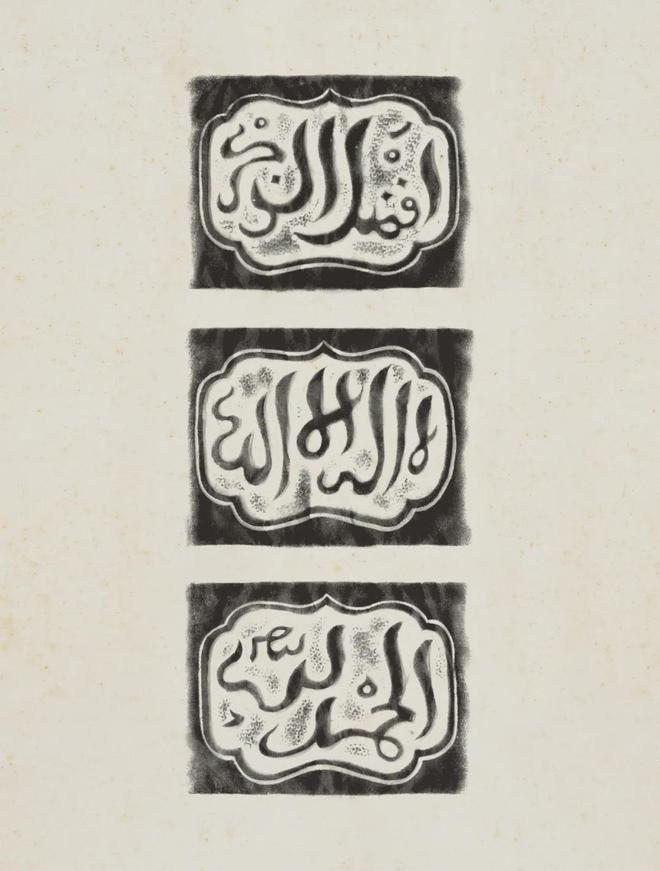 افضل الذكر
لا اله الا الله
الحمد لله